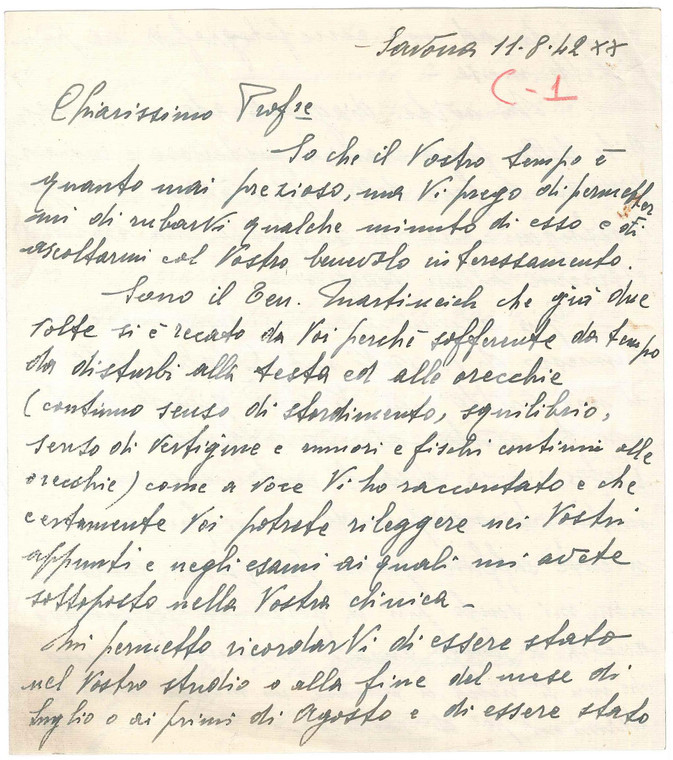 - Savona 11.8.42 XX
C-1
Chiarissimo Profre
So che il Vostro tempo è
quanto mai prezioso, ma Vi prego di permetter
mi di rubarVi qualche minuto di esso e di
ascoltarmi col Vostro benevolo interessamento.
Sono il Ten. Martincich che già due
volte si è recato da Voi perchè sofferente da tempo
da disturbi alla testa ed alle orecchie
(continuo senso di stordimento, squilibrio,
senso di vertigine e rumori e fischi continui alle
orecchie) come a voce Vi ho raccontato e che
certamente Voi potrete rileggere nei Vostri
appunti e negli esami ai quali mi avete
sottoposto nella Vostra clinica -
Mi permetto ricordarVi di essere stato
nel Vostro studio o alla fine del mese di
Luglio o ai primi di Agosto e di essere stato